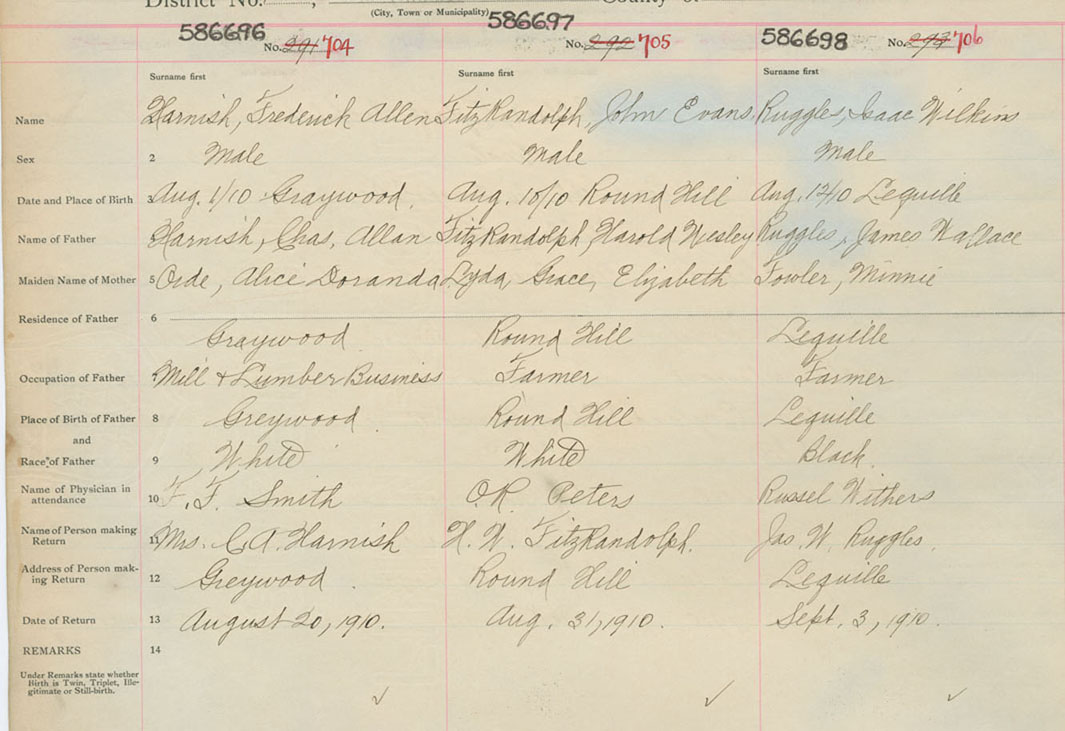 District No. , County of
(City, Town or Municipality)
586696 586697 586698
No. 291 704 No. 292 705 No. 293 706
Surname first Surname first Surname first
Name Harnish, Frederick Allen FitzRandolph, John Evans Ruggles, Isaac Wilkins
Sex 2 Male Male Male
Date and Place of Birth 3 Aug. 1/10 Graywood. Aug. 10/10 Round Hill Aug. 12/10 Lequille
Name of Father Harnish, Chas, Allan FitzRandolph, Harold Wesley Ruggles, James Wallace
Maiden Name of Mother 5 Orde, Alice Doranda Lyda, Grace, Elizabeth Fowler, Minnie
Residence of Father 6
Graywood Round Hill Lequille
Occupation of Father Mill + Lumber Business Farmer Farmer
Place of Birth of Father 8 Greywood Round Hill Lequille
and
Race of Father 9 White White Black.
Name of Physician in
attendance 10 F. F. Smith O.R. Peters Russel Withers
Name of Person making
Return 11 Mrs. C A. Harnish H. W. FitzRandolph. Jas. W. Ruggles.
Address of Person mak-
ing Return 12 Greywood. Round Hill Lequille
Date of Return 13 August 20, 1910. Aug. 31, 1910. Sept. 3, 1910.
REMARKS 14
Under Remarks state whether
Birth is Twin, Triplet, Ille-
gitimate or Still-birth.